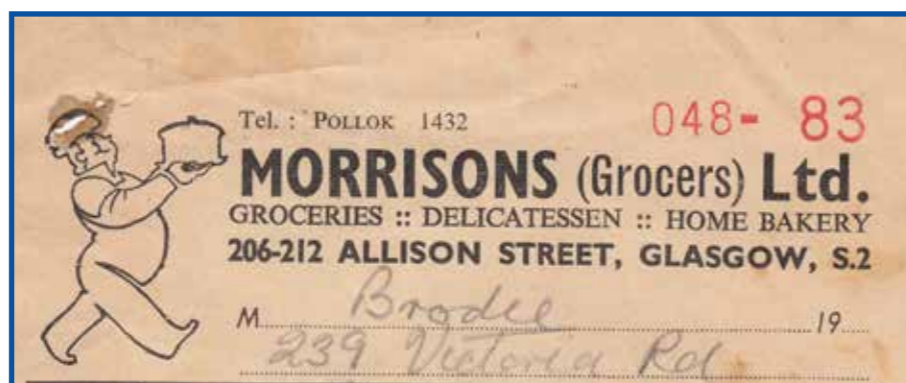 Tel. : POLLOK 1432 048- 83
MORRISONS (Grocers) Ltd.
GROCERIES :: DELICATESSEN :: HOME BAKERY
206-212 ALLISON STREET, GLASGOW, S.2
M Brodie 19
239 Victoria Rd